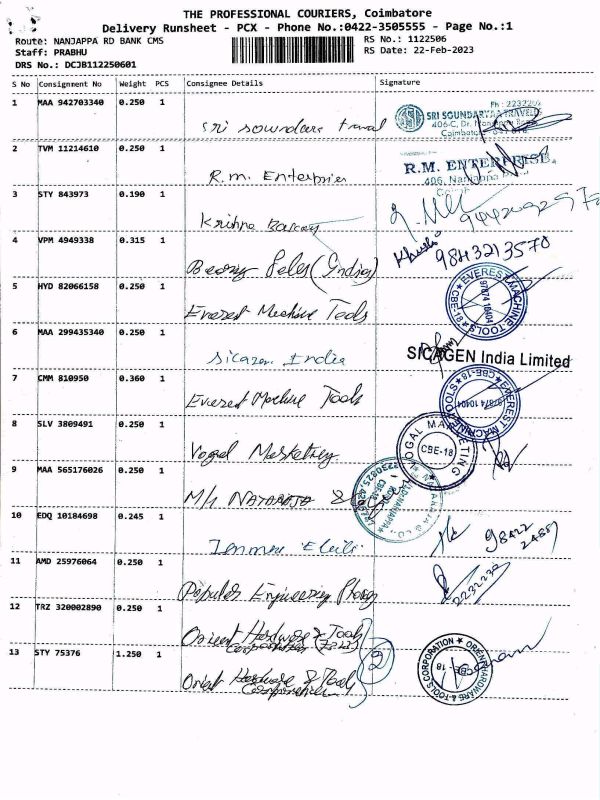 THE PROFESSIONAL COURIERS, Coimbatore
Delivery Runsheet - PCX - Phone No.:0422-3505555 - Page No.:1
Route: NANJAPPA RD BANK CMS
RS No.: 1122506
Staff: PRABHU
RS Date: 22-Feb-2023
DRS No.: DCJB112250601
S No Consignment No Weight PCS Consignee Details Signature
1 MAA 942703340 0.250 1 Sri sowndara travel
Ph : 223220
SRI SOUNDARYA TRAVELS
406-C, Dr.
Coimbatore
2 TVM 11214610 0.250 1 R.m. Enterprier
R.M. ENTERPRISE
406, Nanjappa Road
3 STY 843973 0.190 1 Krishna
4 VPM 4949338 0.315 1 (India)
9843213570
5 HYD 82066158 0.250 1 Everest Machine Tools
EVEREST MACHINE TOOLS CBE-18 97874 10404
6 MAA 299435340 0.250 1 Sicagen India
SICAGEN India Limited
7 CMM 810950 0.360 1 Everest Machine Tools
EVEREST MACHINE TOOLS CBE-18 97874 10404
8 SLV 3809491 0.250 1 Vogal Marketing
VOGAL MARKETING CBE-18
9 MAA 565176026 0.250 1 M/s NATARAJA &
10 EDQ 10184698 0.245 1
98422
11 AMD 25976064 0.250 1 Popular Engineering
2232238
12 TRZ 320002890 0.250 1 Orient Hardware & Tools
Corporation
13 STY 75376 1.250 1 Orient Hardware & Tools
Corporation
2
ORIENT HARDWARE & TOOLS CORPORATION CBE - 18